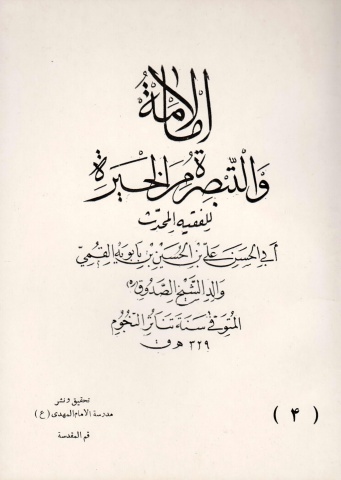 الإمامة
والتبصرة من الحيرة
للفقيه المحدث
أبي الحسن علي بن الحسين بن بابويه القمي
والد الشيخ الصدوق (ره)
المتوفى سنة تناثر النجوم
٣٢٩ هـ ق
تحقيق ونشر
مدرسة الامام المهدى (ع)
قم المقدسة
(۴)